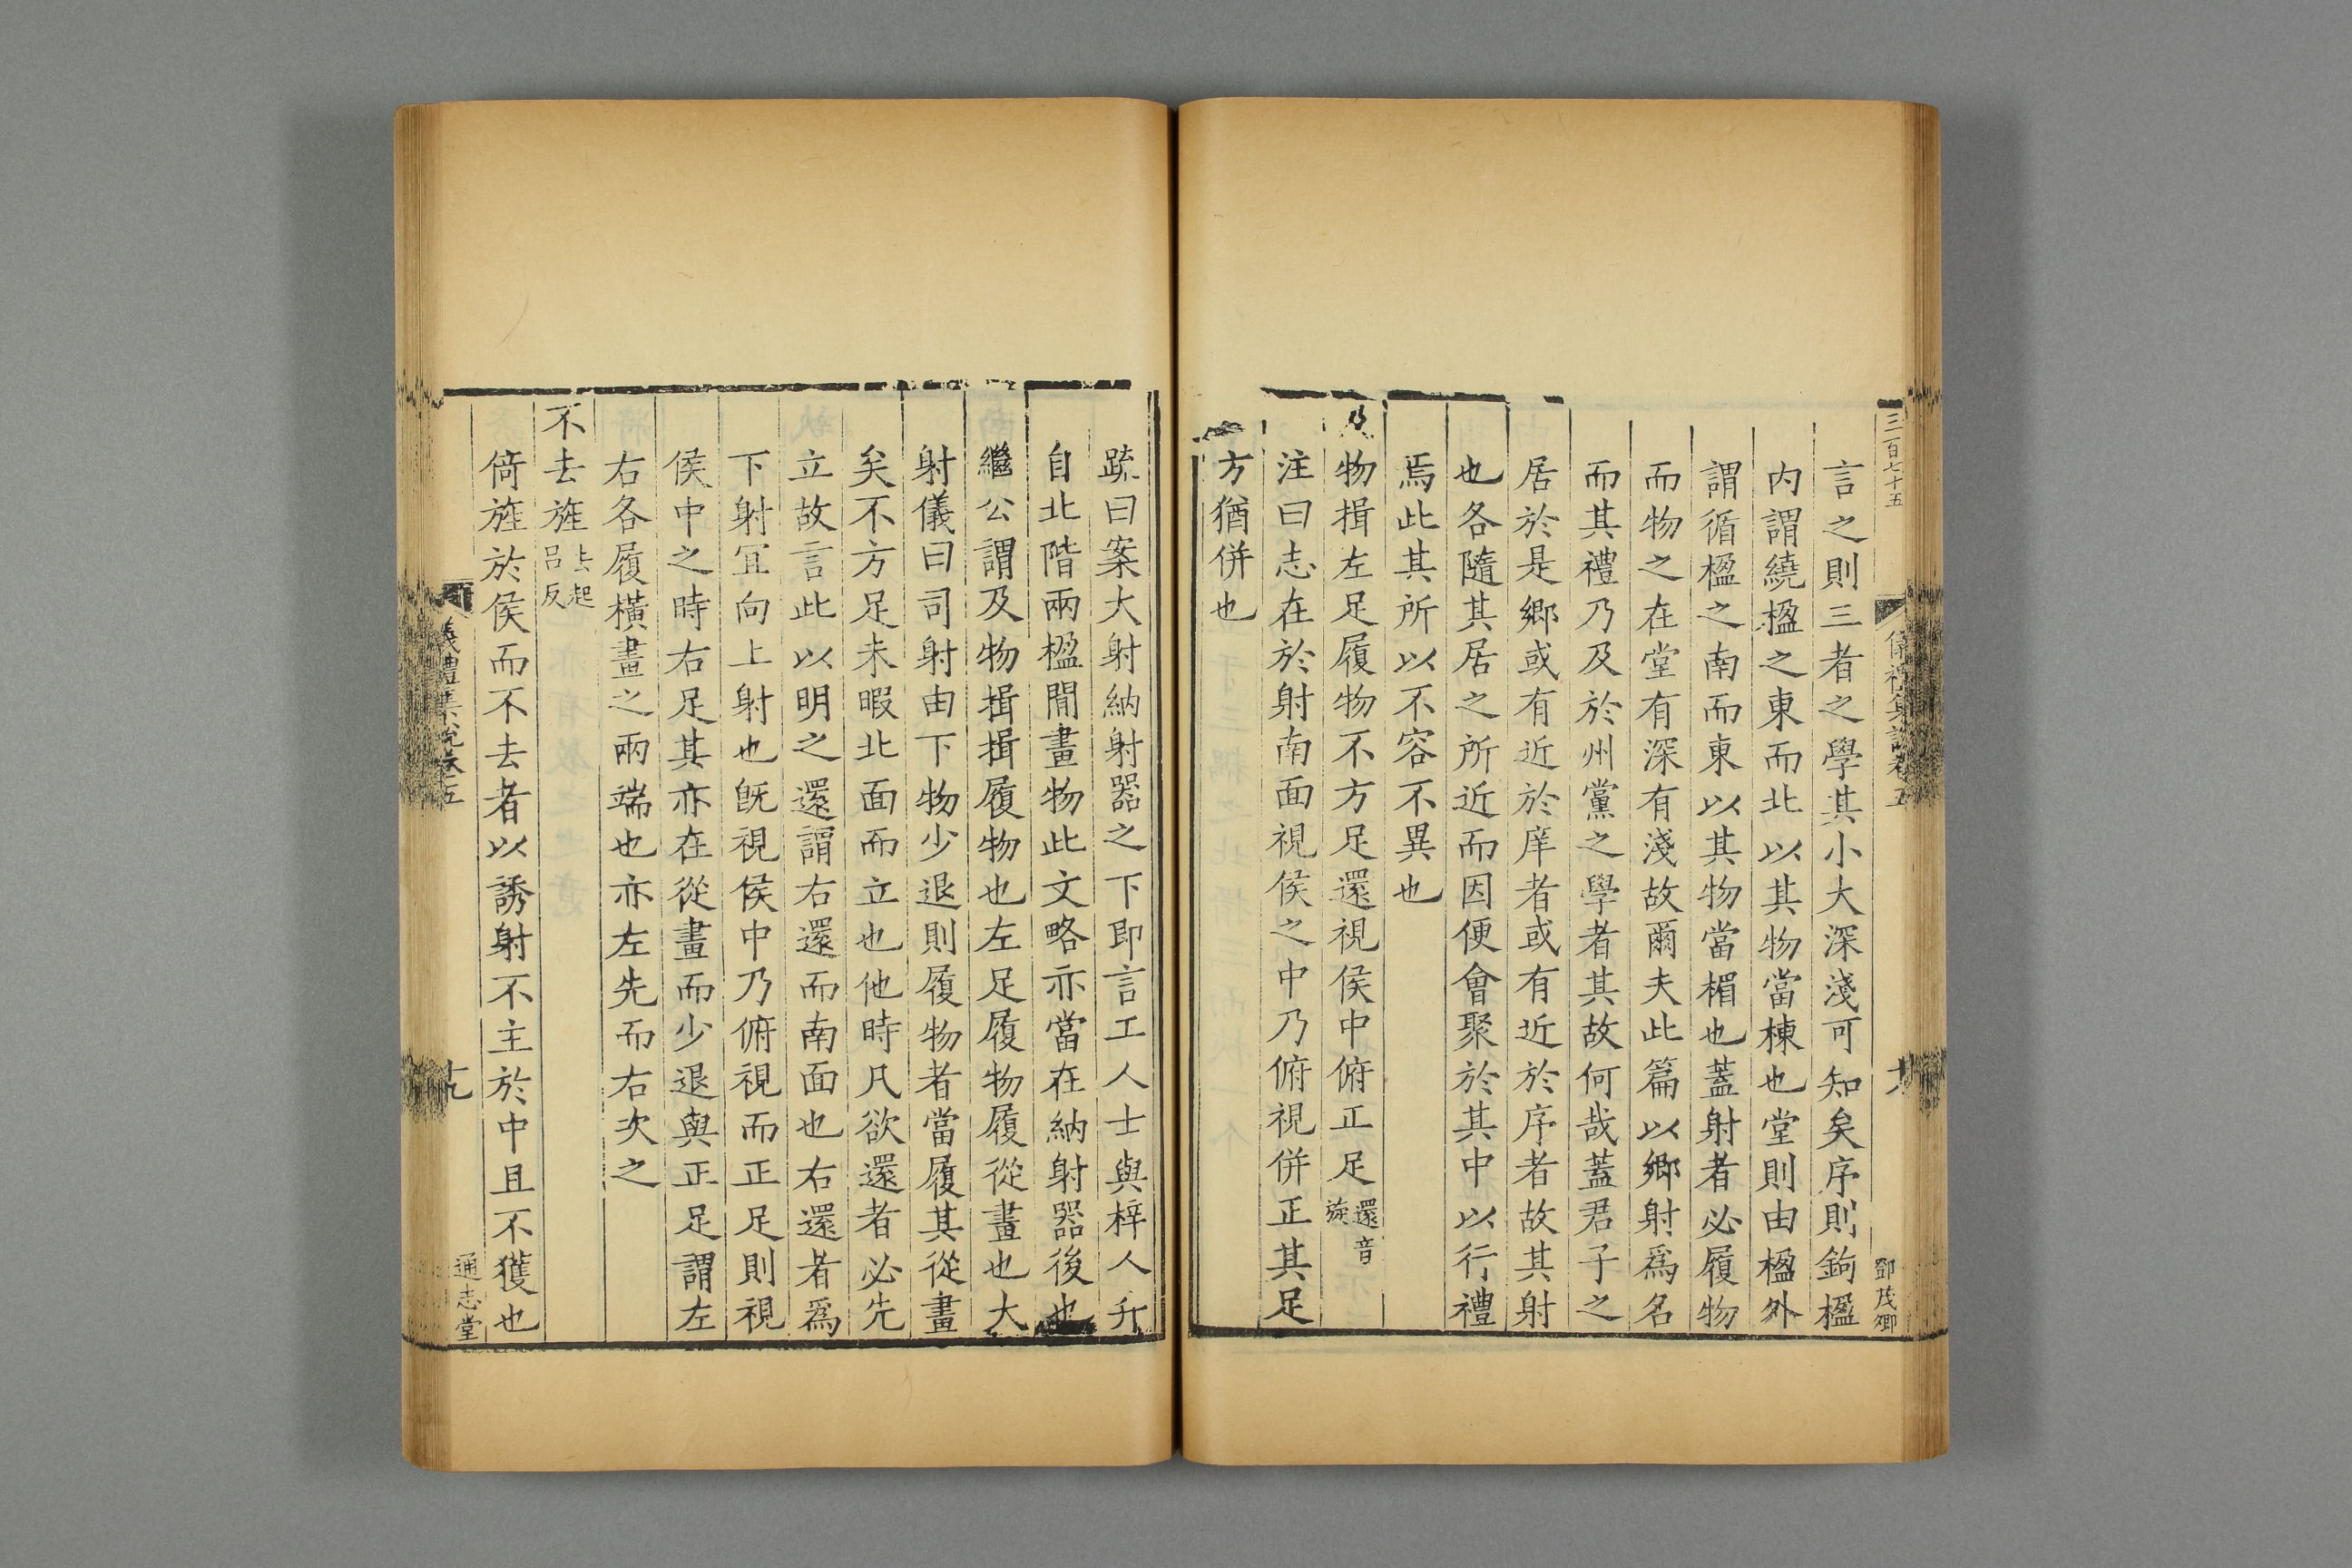 三百七十五
儀禮集說卷五
鄧茂卿
言之則三者之學其小大深淺可知矣序則鉤楹
内謂繞楹之東而北以其物當棟也堂則由楹外
謂循楹之南而東以其物當楣也蓋射者必履物
而物之在堂有深有淺故爾夫此篇以鄉射爲名
而其禮乃及於州黨之學者其故何哉蓋君子之
居於是鄉或有近於庠者或有近於序者故其射
也各隨其居之所近而因便會聚於其中以行禮
焉此其所以不容不異也
物揖左足履物不方足還視侯中俯正足還音旋
注曰志在於射南面視侯之中乃俯視併正其足
方猶併也
疏曰案大射納射器之下即言工人士與梓人升
自北階兩楹閒畫物此文略亦當在納射器後也
繼公謂及物揖揖履物也左足履物履從畫也大
射儀曰司射由下物少退則履物者當履其從畫
矣不方足未暇北面而立也他時凡欲還者必先
立故言此以明之還謂右還而南面也右還者爲
下射宜向上射也旣視侯中乃俯視而正足則視
侯中之時右足其亦在從畫而少退與正足謂左
右各履橫畫之兩端也亦左先而右次之
不去旌去起呂反
倚旌於侯而不去者以誘射不主於中且不獲也
儀禮集說卷五
十九
通志堂